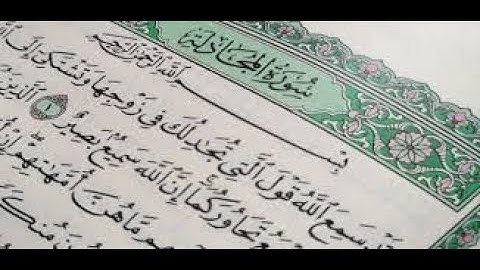 سُورَةُ الْمُجَادِلَةِ
بِسْمِ اللَّهِ الرَّحْمَٰنِ الرَّحِيمِ
سَمِعَ اللَّهُ قَوْلَ الَّتِي تُجَادِلُكَ فِي زَوْجِهَا وَتَشْتَكِي إِلَى
تَحَاوُرَكُمَا إِنَّ اللَّهَ سَمِيعٌ بَصِيرٌ ١ الَّذِينَ
مَّا هُنَّ أُمَّهَاتِهِمْ إِنْ
مُنكَرً